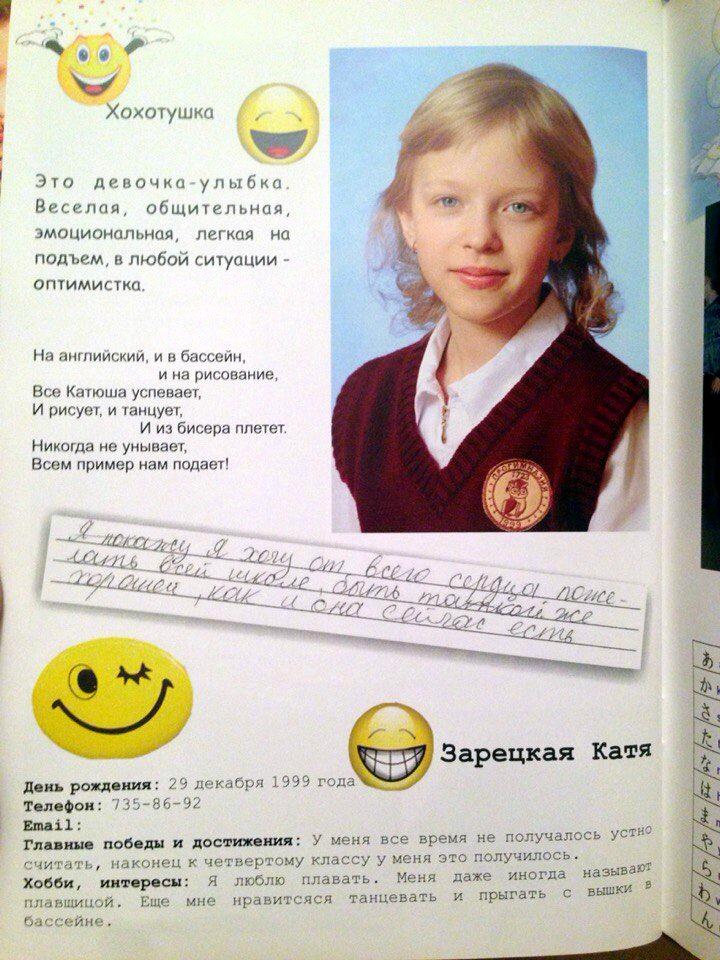 Хохотушка
Это девочка-улыбка.
Веселая, общительная,
эмоциональная, легкая на
подъем, в любой ситуации -
оптимистка.
На английский, и в бассейн,
и на рисование,
Все Катюша успевает,
И рисует, и танцует,
И из бисера плетет.
Никогда не унывает,
Всем пример нам подает!
ПРОГИМНАЗИЯ
1723
1999
Я покажу Я хочу от всего сердца поже-
лать всей школе, быть такой же
хорошей, как и она сейчас есть
Зарецкая Катя
День рождения: 29 декабря 1999 года
Телефон: 735-86-92
Email:
Главные победы и достижения: У меня все время не получалось устно
считать, наконец к четвертому классу у меня это получилось.
Хобби, интересы: Я люблю плавать. Меня даже иногда называют
плавщицой. Еще мне нравитсяся танцевать и прыгать с вышки в
бассейне.
あ
か
さ
た
な
は
ま
や
ら
わ
ん